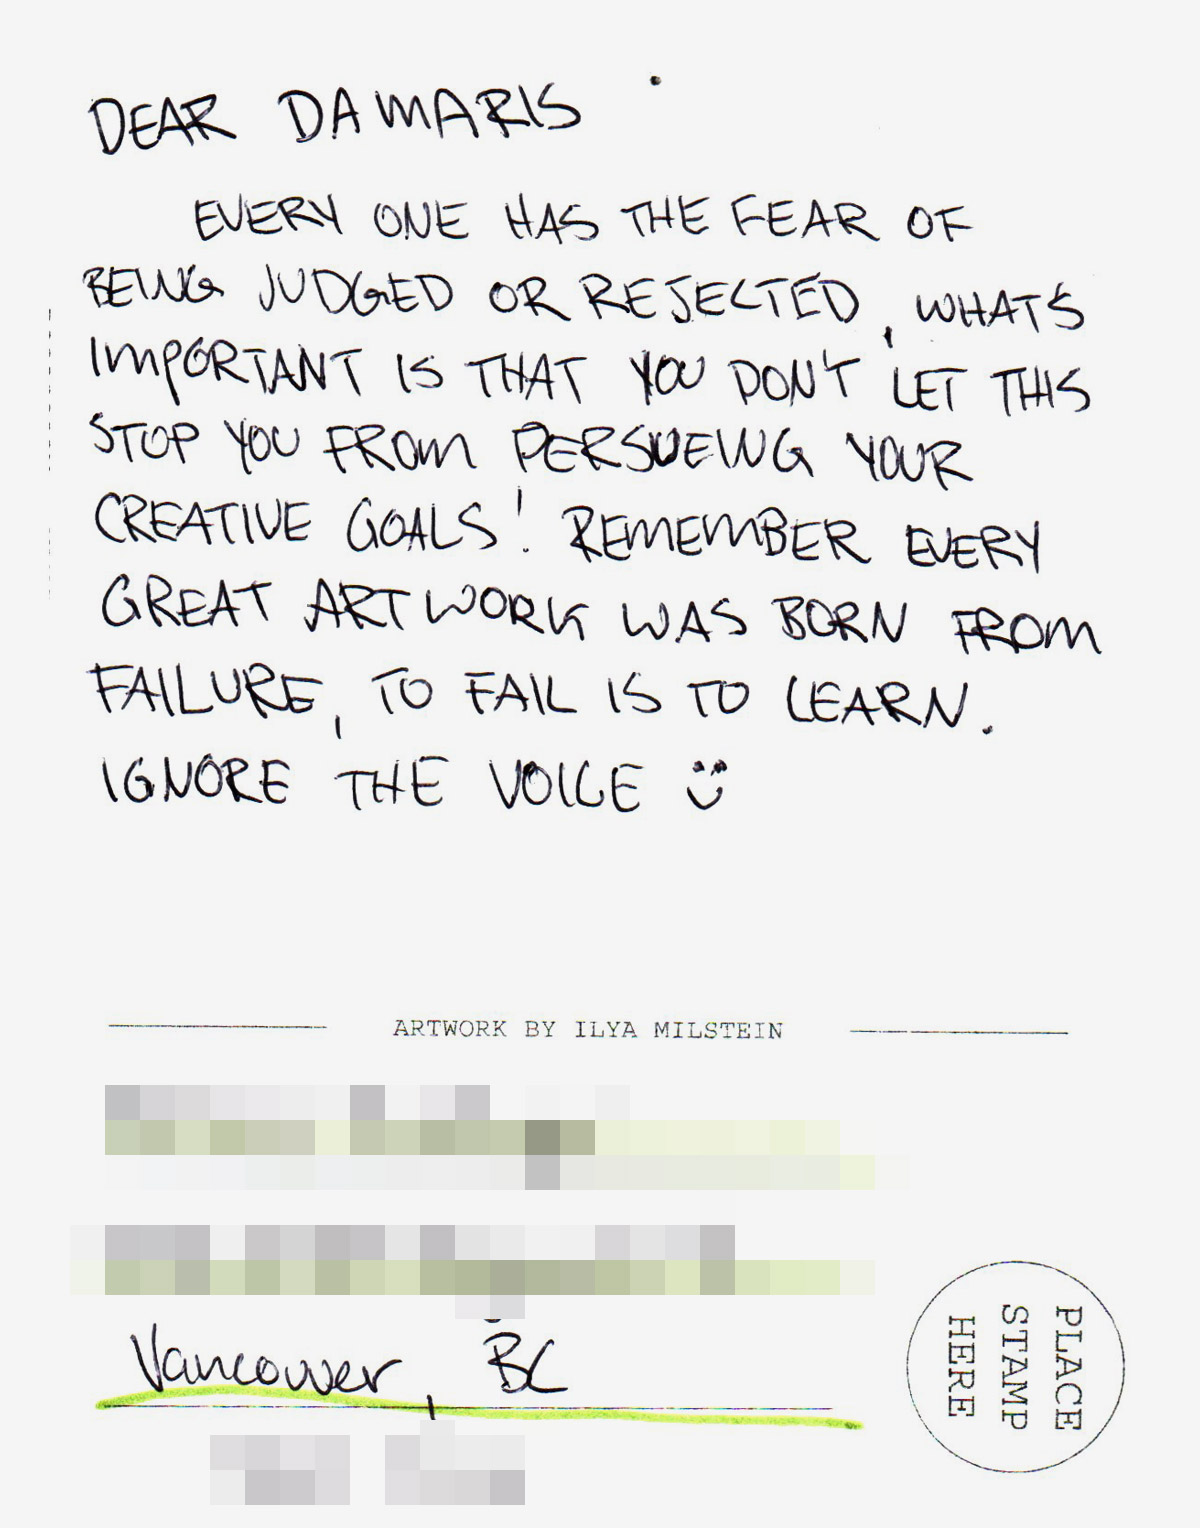 DEAR DAMARIS
EVERY ONE HAS THE FEAR OF
BEING JUDGED OR REJECTED, WHATS
IMPORTANT IS THAT YOU DON'T LET THIS
STOP YOU FROM PERSUEING YOUR
CREATIVE GOALS! REMEMBER EVERY
GREAT ARTWORK WAS BORN FROM
FAILURE, TO FAIL IS TO LEARN.
IGNORE THE VOICE
ARTWORK BY ILYA MILSTEIN
Vancouver, BC
PLACE
STAMP
HERE